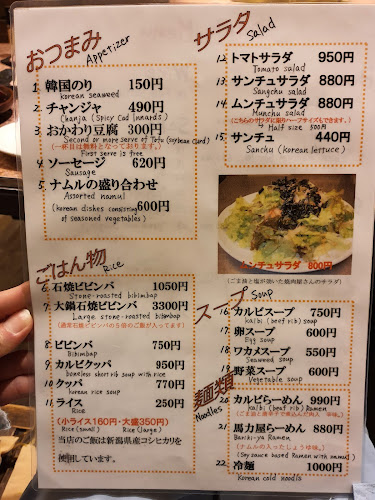 おつまみ
Appetizer
1. 韓国のり 150円
korean seaweed
2. チャンジャ 490円
Chanja (Spicy Cod Innards)
3. おかわり豆腐 300円
Second or more serve of Tofu (soybean Curd)
(一杯目は無料となっております。)
First serve is free
4. ソーセージ 620円
Sausage
5. ナムルの盛り合わせ
Assorted namul
(korean dishes consisting of seasoned vegetables) 600円
ごはん物
Rice
6. 石焼ビビンバ 1050円
Stone-roasted bibimbap
7. 大鍋石焼ビビンバ 3300円
Large stone-roasted bibimbap
(通常石焼ビビンバの5倍のご飯が入ってます)
8. ビビンバ 750円
Bibimbap
9. カルビクッパ 950円
boneless short rib soup with rice
10. クッパ 770円
korean rice soup
11. ライス 250円
Rice
(小ライス160円・大盛350円)
Rice(small) Rice(large)
当店のご飯は新潟県産コシヒカリを
使用しています。
サラダ
Salad
12. トマトサラダ 950円
Tomato salad
13. サンチュサラダ 880円
Sangchu salad
14. ムンチュサラダ 880円
Munchu salad
(こちらのサラダに限りハーフサイズもできます。)
Half size 500円
15. サンチュ 440円
Sanchu (korean lettuce)
ムンチュサラダ 800円
(ごま油と塩が効いた焼肉屋さんのサラダ)
スープ
Soup
16. カルビスープ 750円
kalbi (beef rib) soup
17. 卵スープ 600円
Egg soup
18. ワカメスープ 550円
Seaweed soup
19. 野菜スープ 600円
Vegetable soup
麺類
Noodles
20. カルビらーめん 990円
kalbi (beef rib) Ramen
21. 馬力屋らーめん 880円
Bariki-ya Ramen
(ナムルの入ったしょうゆ味。)
(Soy sauce based Ramen with namul)
22. 冷麺 1000円
Korean cold noodls